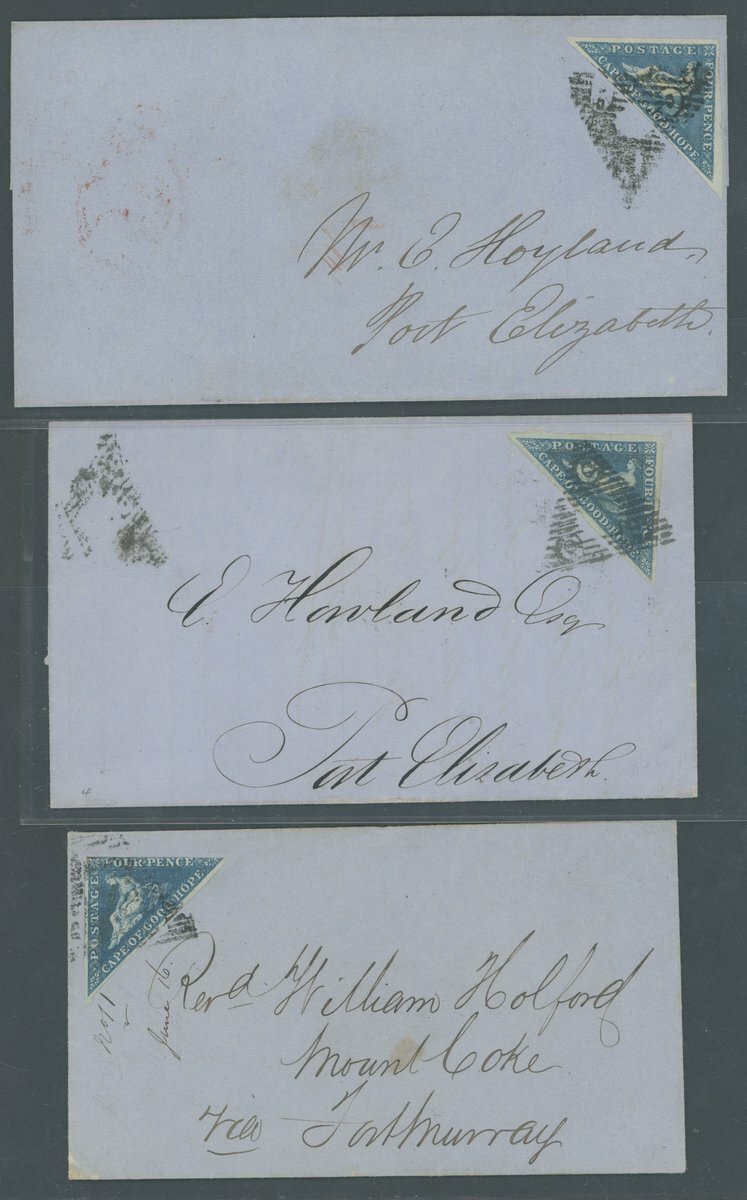 POSTAGE
FOUR PENCE
CAPE OF GOOD HOPE
Mr. E. Hoyland,
Port Elizabeth.
POSTAGE
CAPE OF GOOD HOPE
E. Howland Esq
Port Elizabeth.
4
FOUR PENCE
POSTAGE
CAPE OF GOOD HOPE
June 16.
Revd. William Holford
Mount Coke
via Fort Murray